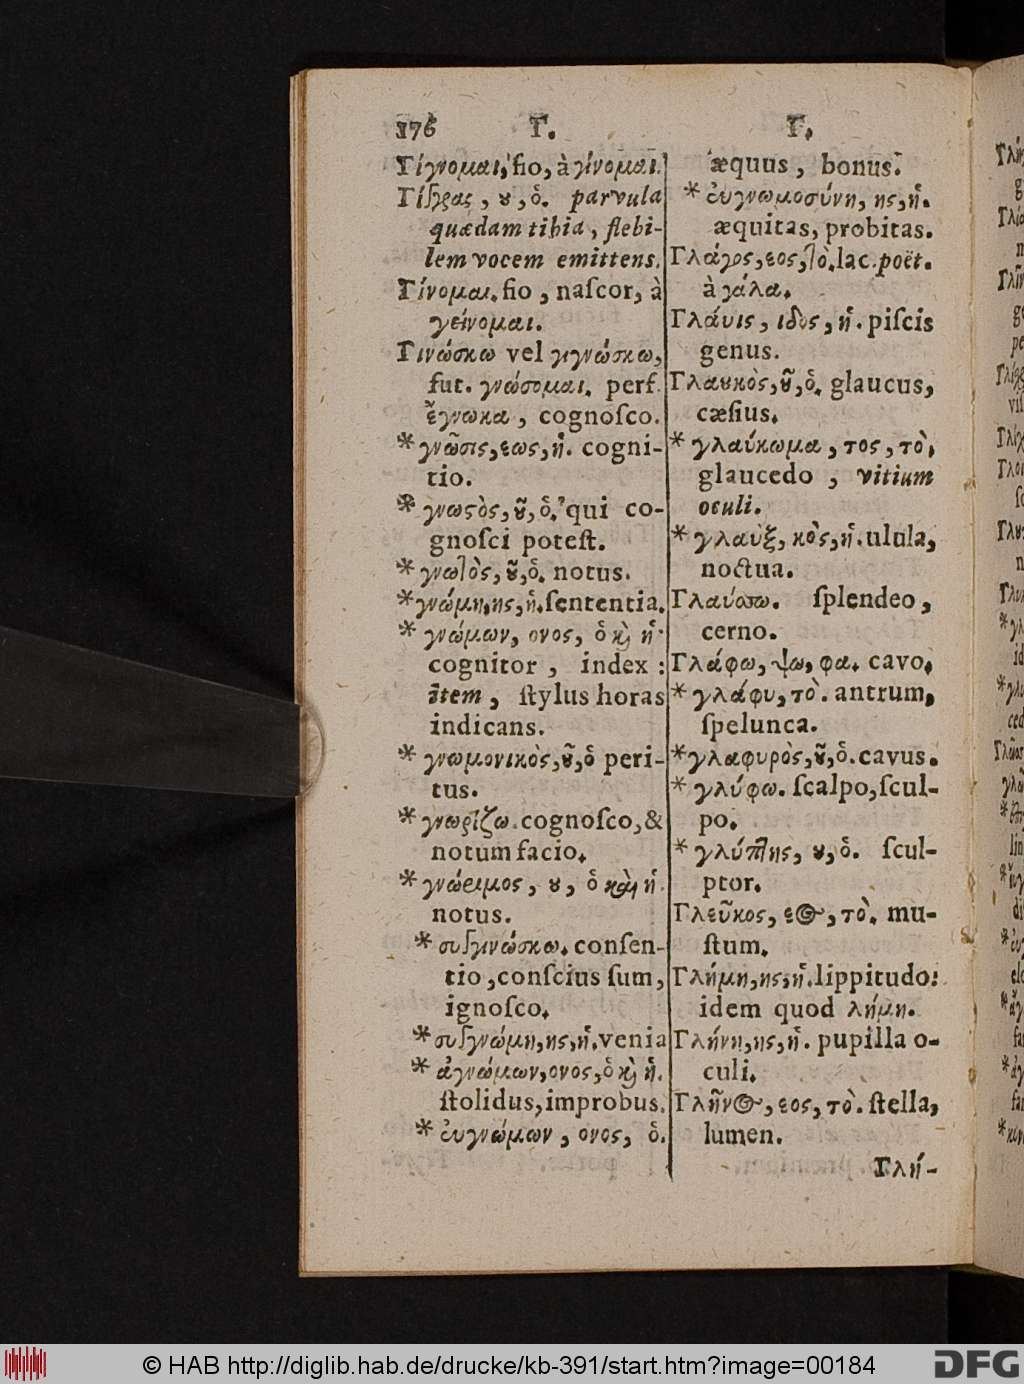 176 Γ. Γ.
Γίγνομαι, fio, à γίνομαι.
Γίγγρας, ȣ, ὁ. parvula
quædam tibia, flebi-
lem vocem emittens.
Γίνομαι. fio, naſcor, à
γείνομαι.
Γινώσκω vel γιγνώσκω,
fut. γνώσομαι. perf.
ἔγνωκα, cognoſco.
* γνῶσις, εως, ἡ. cogni-
tio.
* γνωϛὸς, ȣ͂, ὁ. qui co-
gnoſci poteſt.
* γνωτὸς, ȣ͂, ὁ. notus.
* γνώμη, ης, ἡ. ſententia.
* γνώμων, ονος, ὁ κ̀ ἡ.
cognitor, index:
item, ſtylus horas
indicans.
* γνωμονικὸς, ȣ͂, ὁ peri-
tus.
* γνωρίζω. cognoſco, &
notum facio.
* γνώριμος, ȣ, ὁ καὶ ἡ.
notus.
* συγγινώσκω. conſen-
tio, conſcius ſum,
ignoſco.
* συγγνώμη, ης, ἡ. venia
* ἀγνώμων, ονος, ὁ κ̀ ἡ.
ſtolidus, improbus.
* ἐυγνώμων, ονος, ὁ.
æquus, bonus.
* ἐυγνωμοσύνη, ης, ἡ.
æquitas, probitas.
Γλάγος, εος, τὸ. lac. poët.
à γάλα.
Γλάνις, ιδος, ἡ. piſcis
genus.
Γλαυκὸς, ȣ͂, ὁ. glaucus,
cæſius.
* γλαύκωμα, τος, τὸ.
glaucedo, vitium
oculi.
* γλαὺξ, κὸς, ἡ. ulula,
noctua.
Γλαύσσω. ſplendeo,
cerno.
Γλάφω, ψω, φα. cavo.
* γλάφυ, τὸ. antrum,
ſpelunca.
* γλαφυρὸς, ȣ͂, ὁ. cavus.
* γλύφω. ſcalpo, ſcul-
po.
* γλύπτης, ȣ, ὁ. ſcul-
ptor.
Γλεῦκος, εος, τὸ. mu-
ſtum.
Γλήμη, ης, ἡ. lippitudo:
idem quod λήμη.
Γλήνη, ης, ἡ. pupilla o-
culi.
Γλῆνος, εος, τὸ. ſtella,
lumen.
Γλή-
© HAB http://diglib.hab.de/drucke/kb-391/start.htm?image=00184
DFG